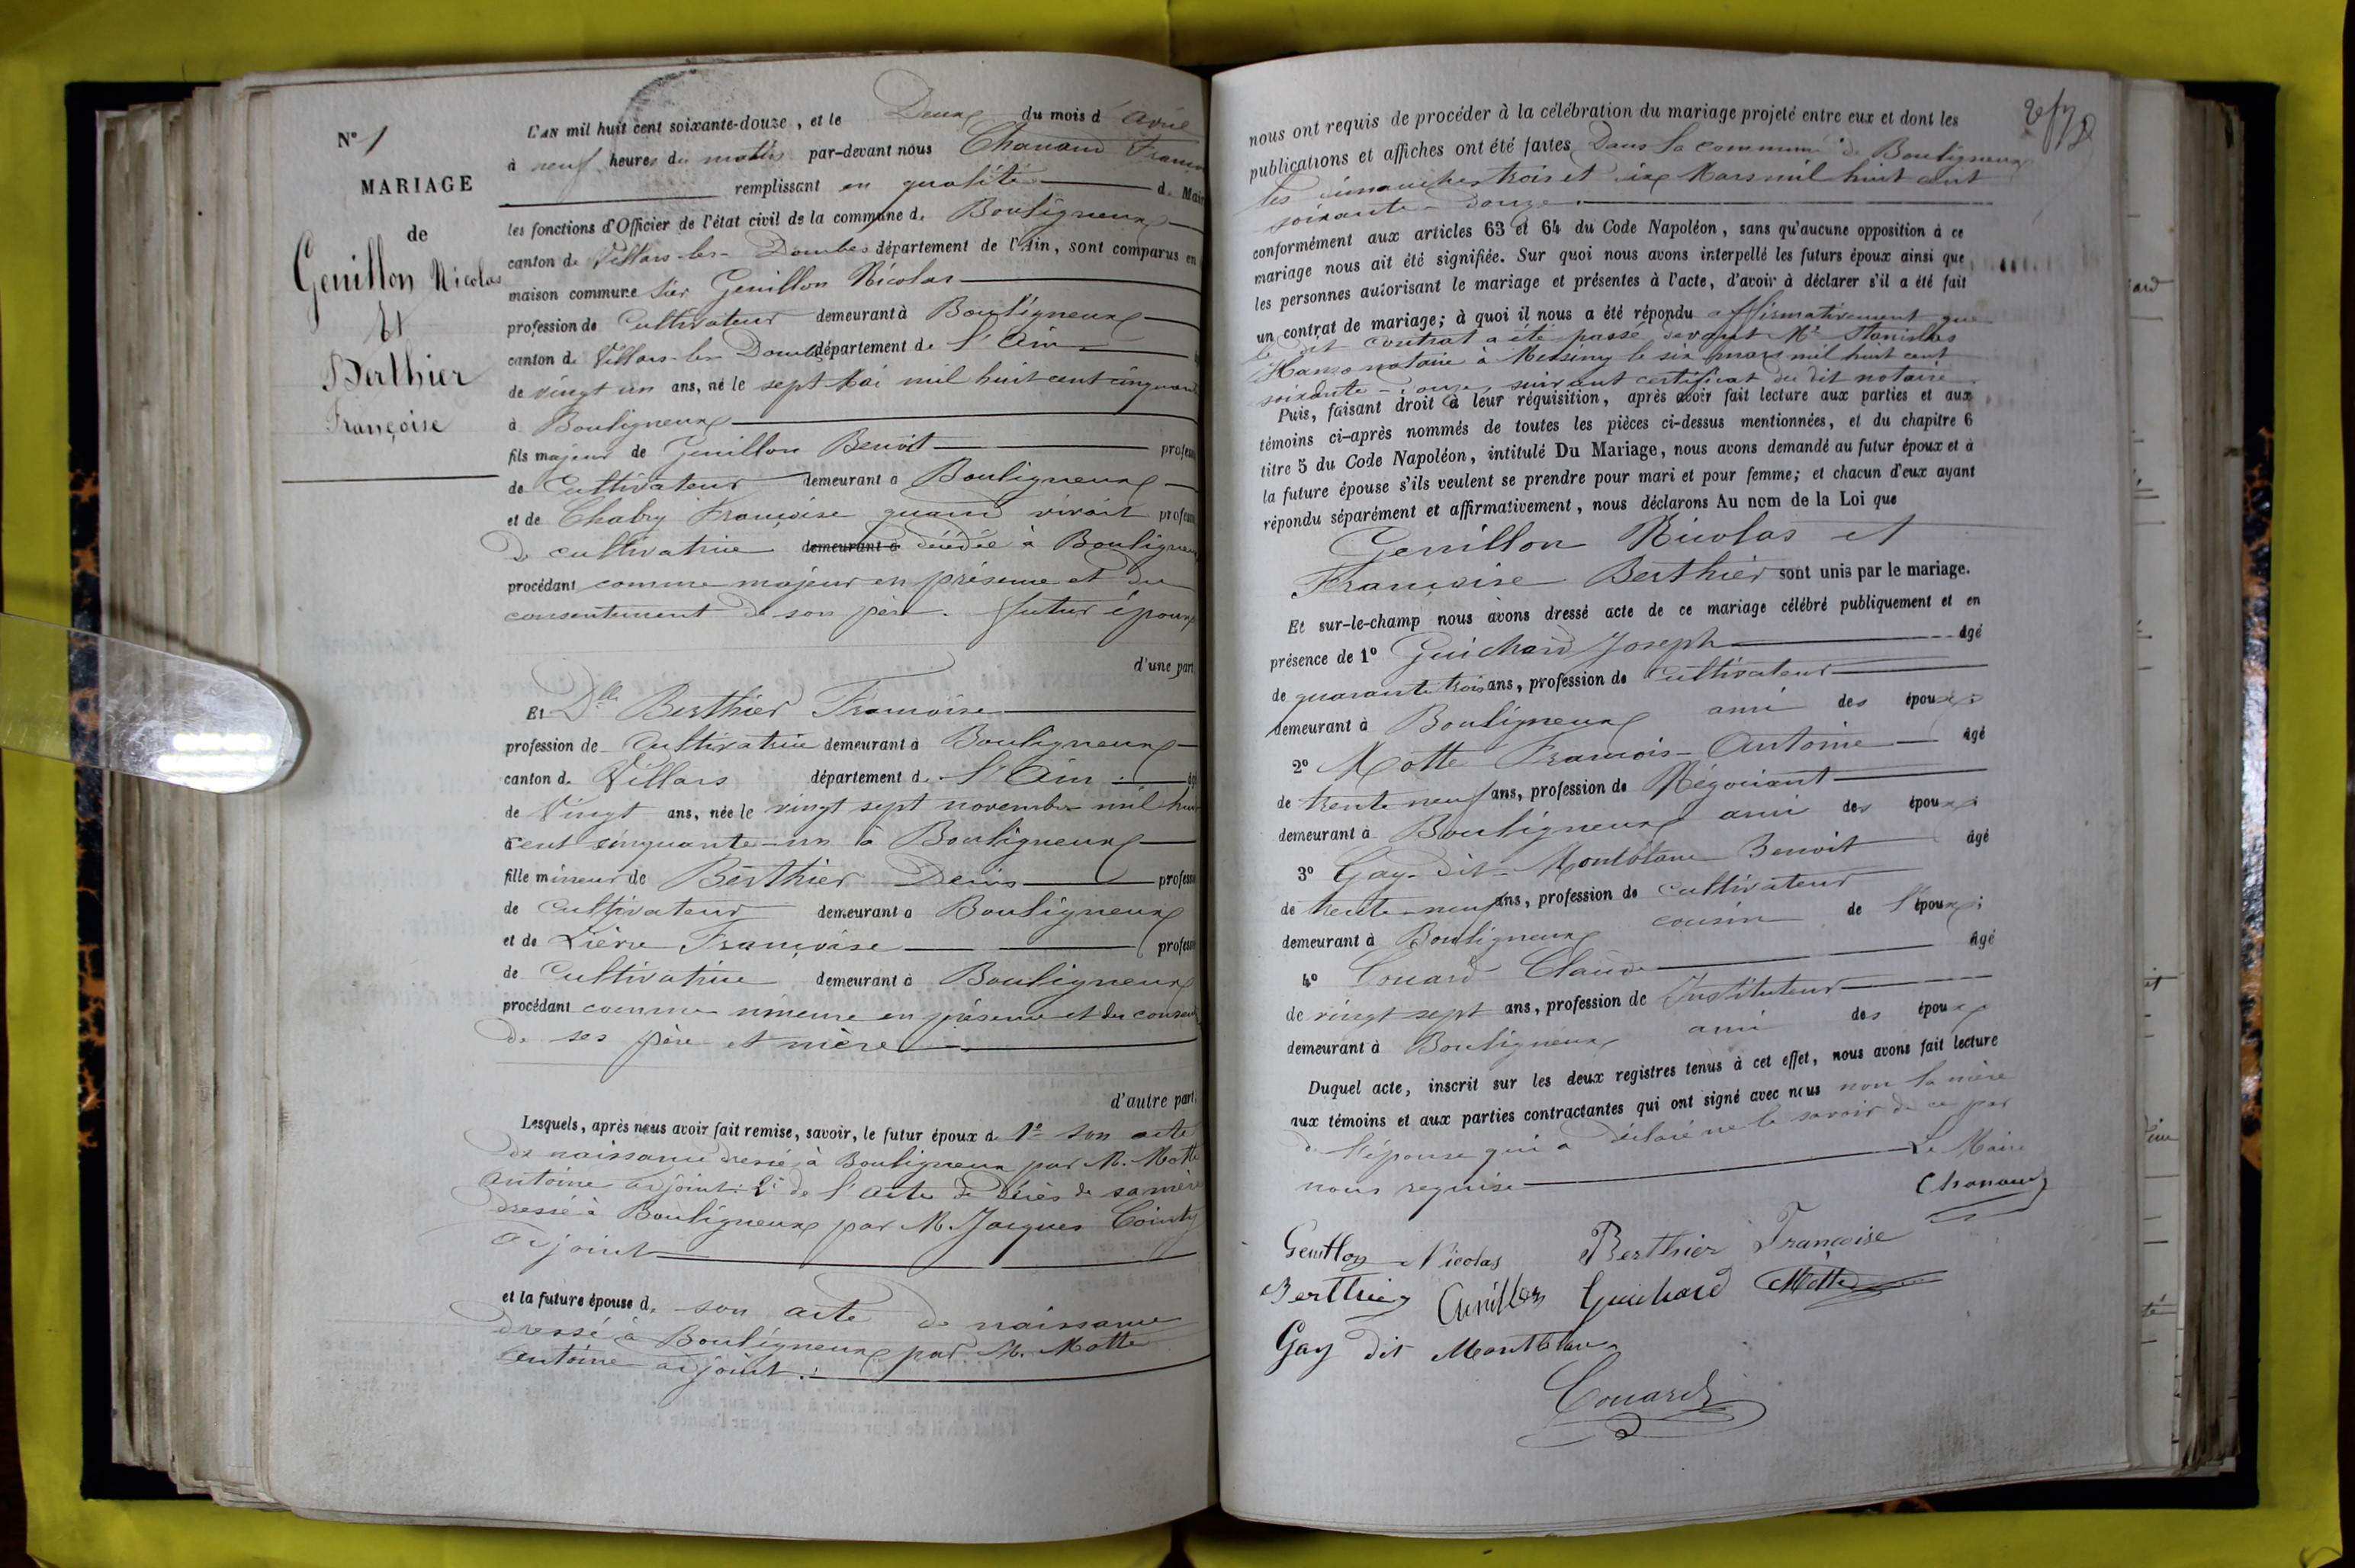 N° 1
MARIAGE
de
Genillon Nicolas
Et
Berthier
Françoise
L'AN mil huit cent soixante-douze, et le Deux du mois d'Avril
à neuf heures du matin par-devant nous Chanaud
remplissant en qualité de Maire
les fonctions d'Officier de l'état civil de la commune de Bouligneux
canton de Villars-les-Dombes département de l'Ain, sont comparus en
maison commune sier Genillon Nicolas
profession de Cultivateur demeurant à Bouligneux
canton de Villars-les-Dombes département de l'Ain
de vingt un ans, né le sept Mai mil huit cent cinquante
à Bouligneux
fils majeur de Genillon Benoit profession
de Cultivateur demeurant à Bouligneux
et de Chabry Françoise quand vivait profession
de cultivatrice demeurant à décédée à Bouligneux
procédant comme majeur en présence et du
consentement de son père. futur époux
d'une part,
Et Dlle Berthier Francoise
profession de Cultivatrice demeurant à Bouligneux
canton de Villars département de l'Ain
de Vingt ans, née le vingt sept novembre mil huit
cent cinquante-un à Bouligneux
fille mineur de Berthier Denis profession
de Cultivateur demeurant à Bouligneux
et de Françoise profession
de Cultivatrice demeurant à Bouligneux
procédant comme mineure en présence et du
de ses père et mère
d'autre part;
Lesquels, après nous avoir fait remise, savoir, le futur époux de 1° son acte
de naissance dressé à Bouligneux par M. Motte
Antoine adjoint: 2° de l'acte de décès de sa mère
dressé à Bouligneux par M. Jacques
adjoint
et la future épouse de son acte de naissance
dressé à Bouligneux par M. Motte
Antoine adjoint.
nous ont requis de procéder à la célébration du mariage projeté entre eux et dont les
publications et affiches ont été faites Dans la commune de Bouligneux
les dimanches trois et dix Mars mil huit cent
soixante-douze.
conformément aux articles 63 et 64 du Code Napoléon, sans qu'aucune opposition à ce
mariage nous ait été signifiée. Sur quoi nous avons interpellé les futurs époux ainsi que
les personnes autorisant le mariage et présentes à l'acte, d'avoir à déclarer s'il a été fait
un contrat de mariage; à quoi il nous a été répondu affirmativement que
le dit contrat a été passé devant Me Stanislas
notaire à Messimy le six mars mil huit cent
soixante-douze, suivant certificat du dit notaire
Puis, faisant droit à leur réquisition, après avoir fait lecture aux parties et aux
témoins ci-après nommés de toutes les pièces ci-dessus mentionnées, et du chapitre 6
titre 5 du Code Napoléon, intitulé Du Mariage, nous avons demandé au futur époux et à
la future épouse s'ils veulent se prendre pour mari et pour femme; et chacun d'eux ayant
répondu séparément et affirmativement, nous déclarons Au nom de la Loi que
Genillon Nicolas et
Françoise Berthier sont unis par le mariage.
Et sur-le-champ nous avons dressé acte de ce mariage célébré publiquement et en
présence de 1° Guichard Joseph âgé
de quarante trois ans, profession de Cultivateur
demeurant à Bouligneux ami des époux;
2° Motte Francois-Antoine âgé
de trente neuf ans, profession de Négociant
demeurant à Bouligneux ami des époux;
3° Gay-dit-Montblanc Benoit âgé
de trente-neuf ans, profession de Cultivateur
demeurant à Bouligneux cousin de l'époux;
4° Couard Claude âgé
de vingt sept ans, profession de Instituteur
demeurant à Bouligneux ami des époux
Duquel acte, inscrit sur les deux registres tenus à cet effet, nous avons fait lecture
aux témoins et aux parties contractantes qui ont signé avec nous non la mère
de l'épouse qui a déclaré ne le savoir de ce par
nous requise Le Maire
Chanaud
Genillon Nicolas Berthier Françoise
Berthier Genillon Guichard Motte
Gay dit Montblanc
Couard